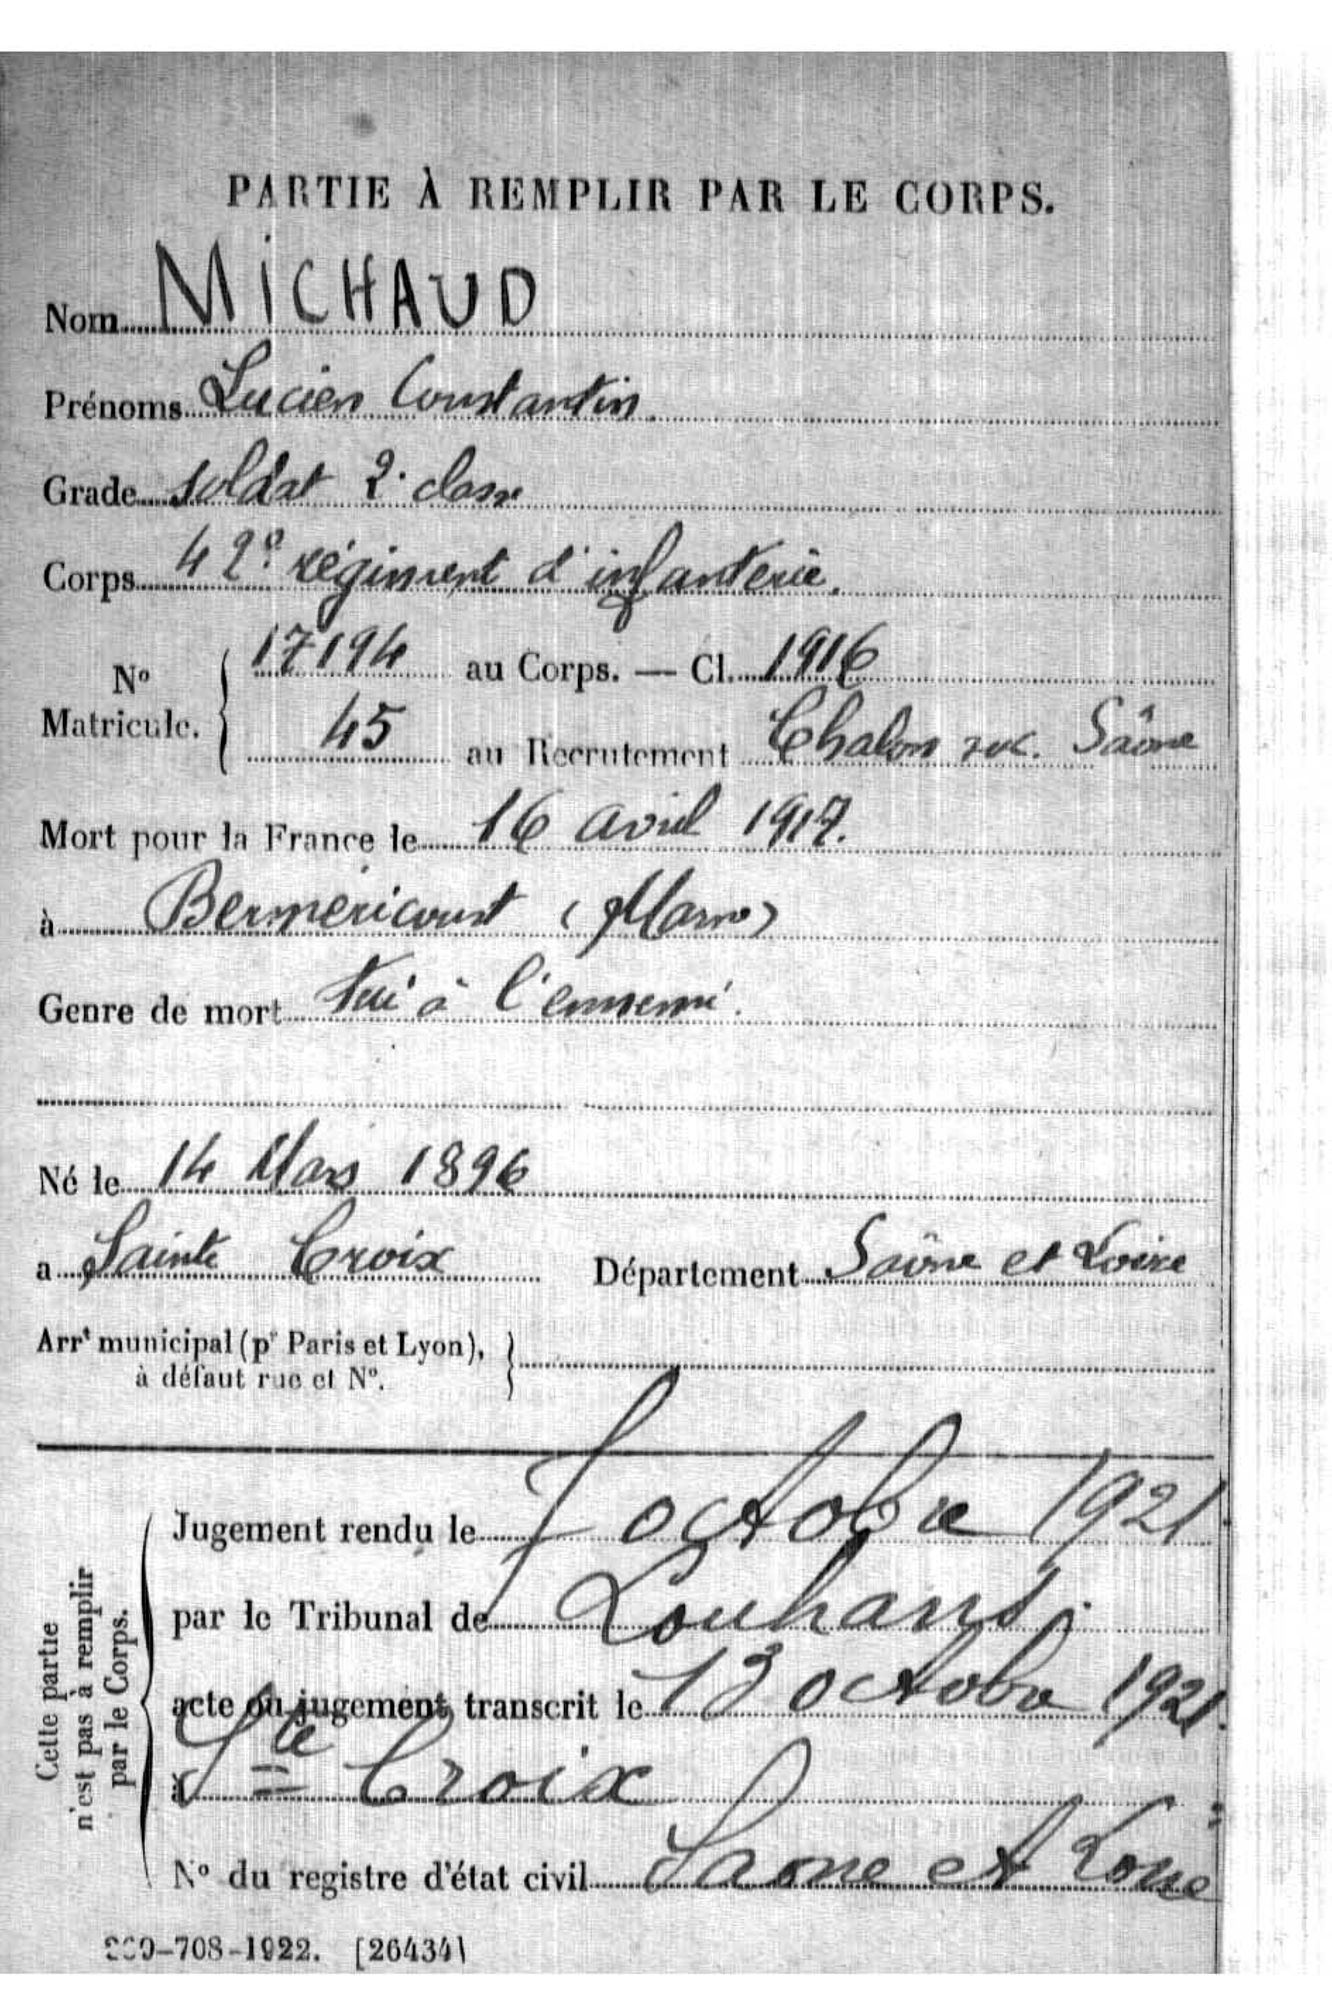 PARTIE À REMPLIR PAR LE CORPS.
Nom MICHAUD
Prénoms Lucien Constantin
Grade soldat 2e classe
Corps 42e régiment d'infanterie.
No Matricule. 17194 au Corps. — Cl. 1916
45 au Recrutement Chalon sur Saône
Mort pour la France le 16 avril 1917.
à Berméricourt (Marne)
Genre de mort tué à l'ennemi.
Né le 14 Mars 1896
a Sainte Croix Département Saône et Loire
Arrt municipal (pr Paris et Lyon),
à défaut rue et No.
Cette partie
n'est pas à remplir
par le Corps.
Jugement rendu le 7 octobre 1921
par le Tribunal de Louhans.
acte ou jugement transcrit le 13 octobre 1921.
à Ste Croix
No du registre d'état civil Saone et Loire
-708-1922. [26434]